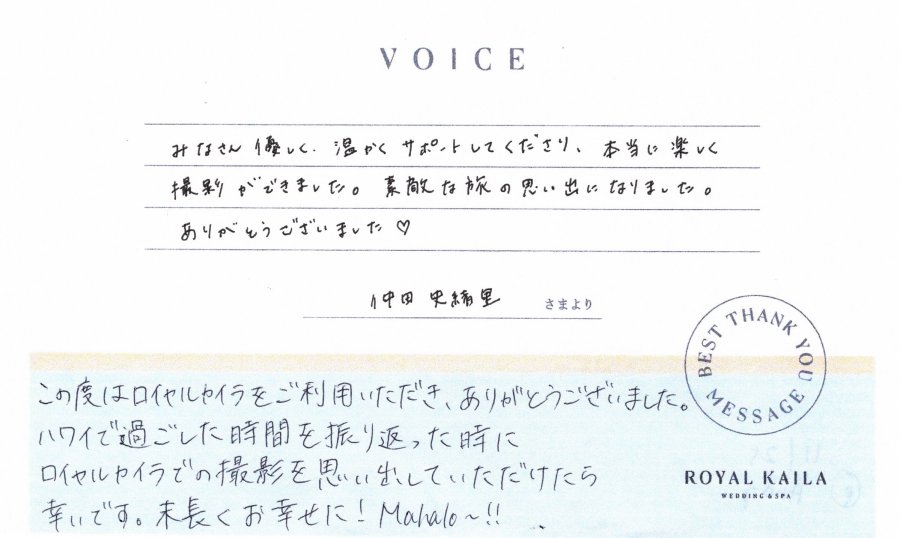 VOICE
みなさん優しく、温かくサポートしてくださり、本当に楽しく
撮影ができました。素敵な旅の思い出になりました。
ありがとうございました♡
仲田 史緒里 さまより
BEST THANK YOU MESSAGE
この度はロイヤルカイラをご利用いただき、ありがとうございました。
ハワイで過ごした時間を振り返った時に
ロイヤルカイラでの撮影を思い出していただけたら
幸いです。末長くお幸せに！Mahalo〜!!
ROYAL KAILA
WEDDING & SPA